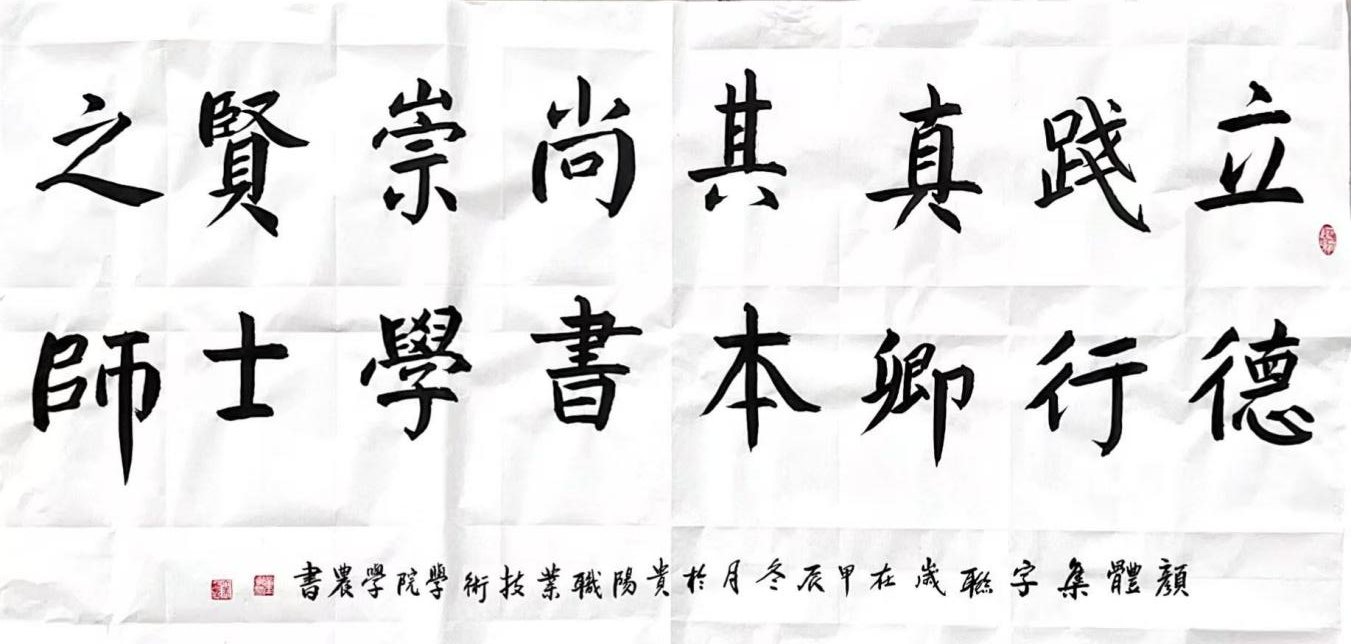 立德
践行
真卿
其本
尚書
崇學
賢士
之師
顏體集字聯歲在甲辰冬月於貴陽職業技術學院學農書